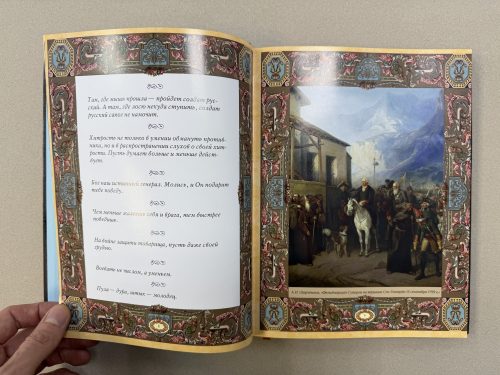 Там, где мышь прошла — пройдет солдат рус-
ский. А там, где аист некуда ступить, солдат
русский сапог не намочит.
Хитрость не только в умении обмануть против-
ника, но и в распространении слухов о своей хит-
рости. Пусть думают больше и меньше дейст-
вуют.
Бог наш истинный генерал. Молись, и Он подарит
тебе победу.
Чем меньше жалеешь себя и врага, тем быстрее
победишь.
На войне защити товарища, пусть даже своей
грудью.
Воевать не числом, а умением.
Пуля — дура, штык — молодец.